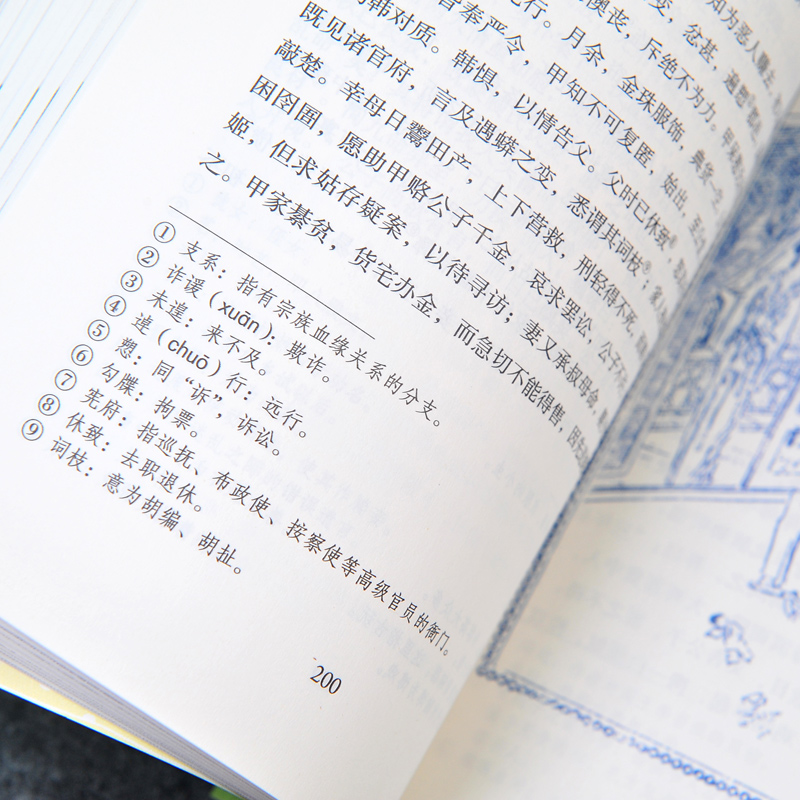 知为恶人
变，忿甚，遍愬
澳丧，斥绝不为力。
行。月余，金珠服饰，典货一
奉严令，甲知不可复匿，始出，至
韩对质。韩惧，以情告父。父时已休致⑧，
既见诸官府，言及遇蟒之变，悉谓其词枝⑨；家
敲楚。幸母日鬻田产，上下营救，刑轻得不死，
困囹圄，愿助甲赂公子千金，哀求罢讼，公子不
姬，但求姑存疑案，以待寻访；妻又承叔母命，
之。甲家綦贫，货宅办金，而急切不能得售，因先
① 支系：指有宗族血缘关系的分支。
② 诈谖（xuān）：欺诈。
③ 未遑：来不及。
④ 逴（chuō）行：远行。
⑤ 愬：同“诉”，诉讼。
⑥ 勾牒：拘票。
⑦ 宪府：指巡抚、布政使、按察使等高级官员的衙门。
⑧ 休致：去职退休。
⑨ 词枝：意为胡编、胡扯。
200